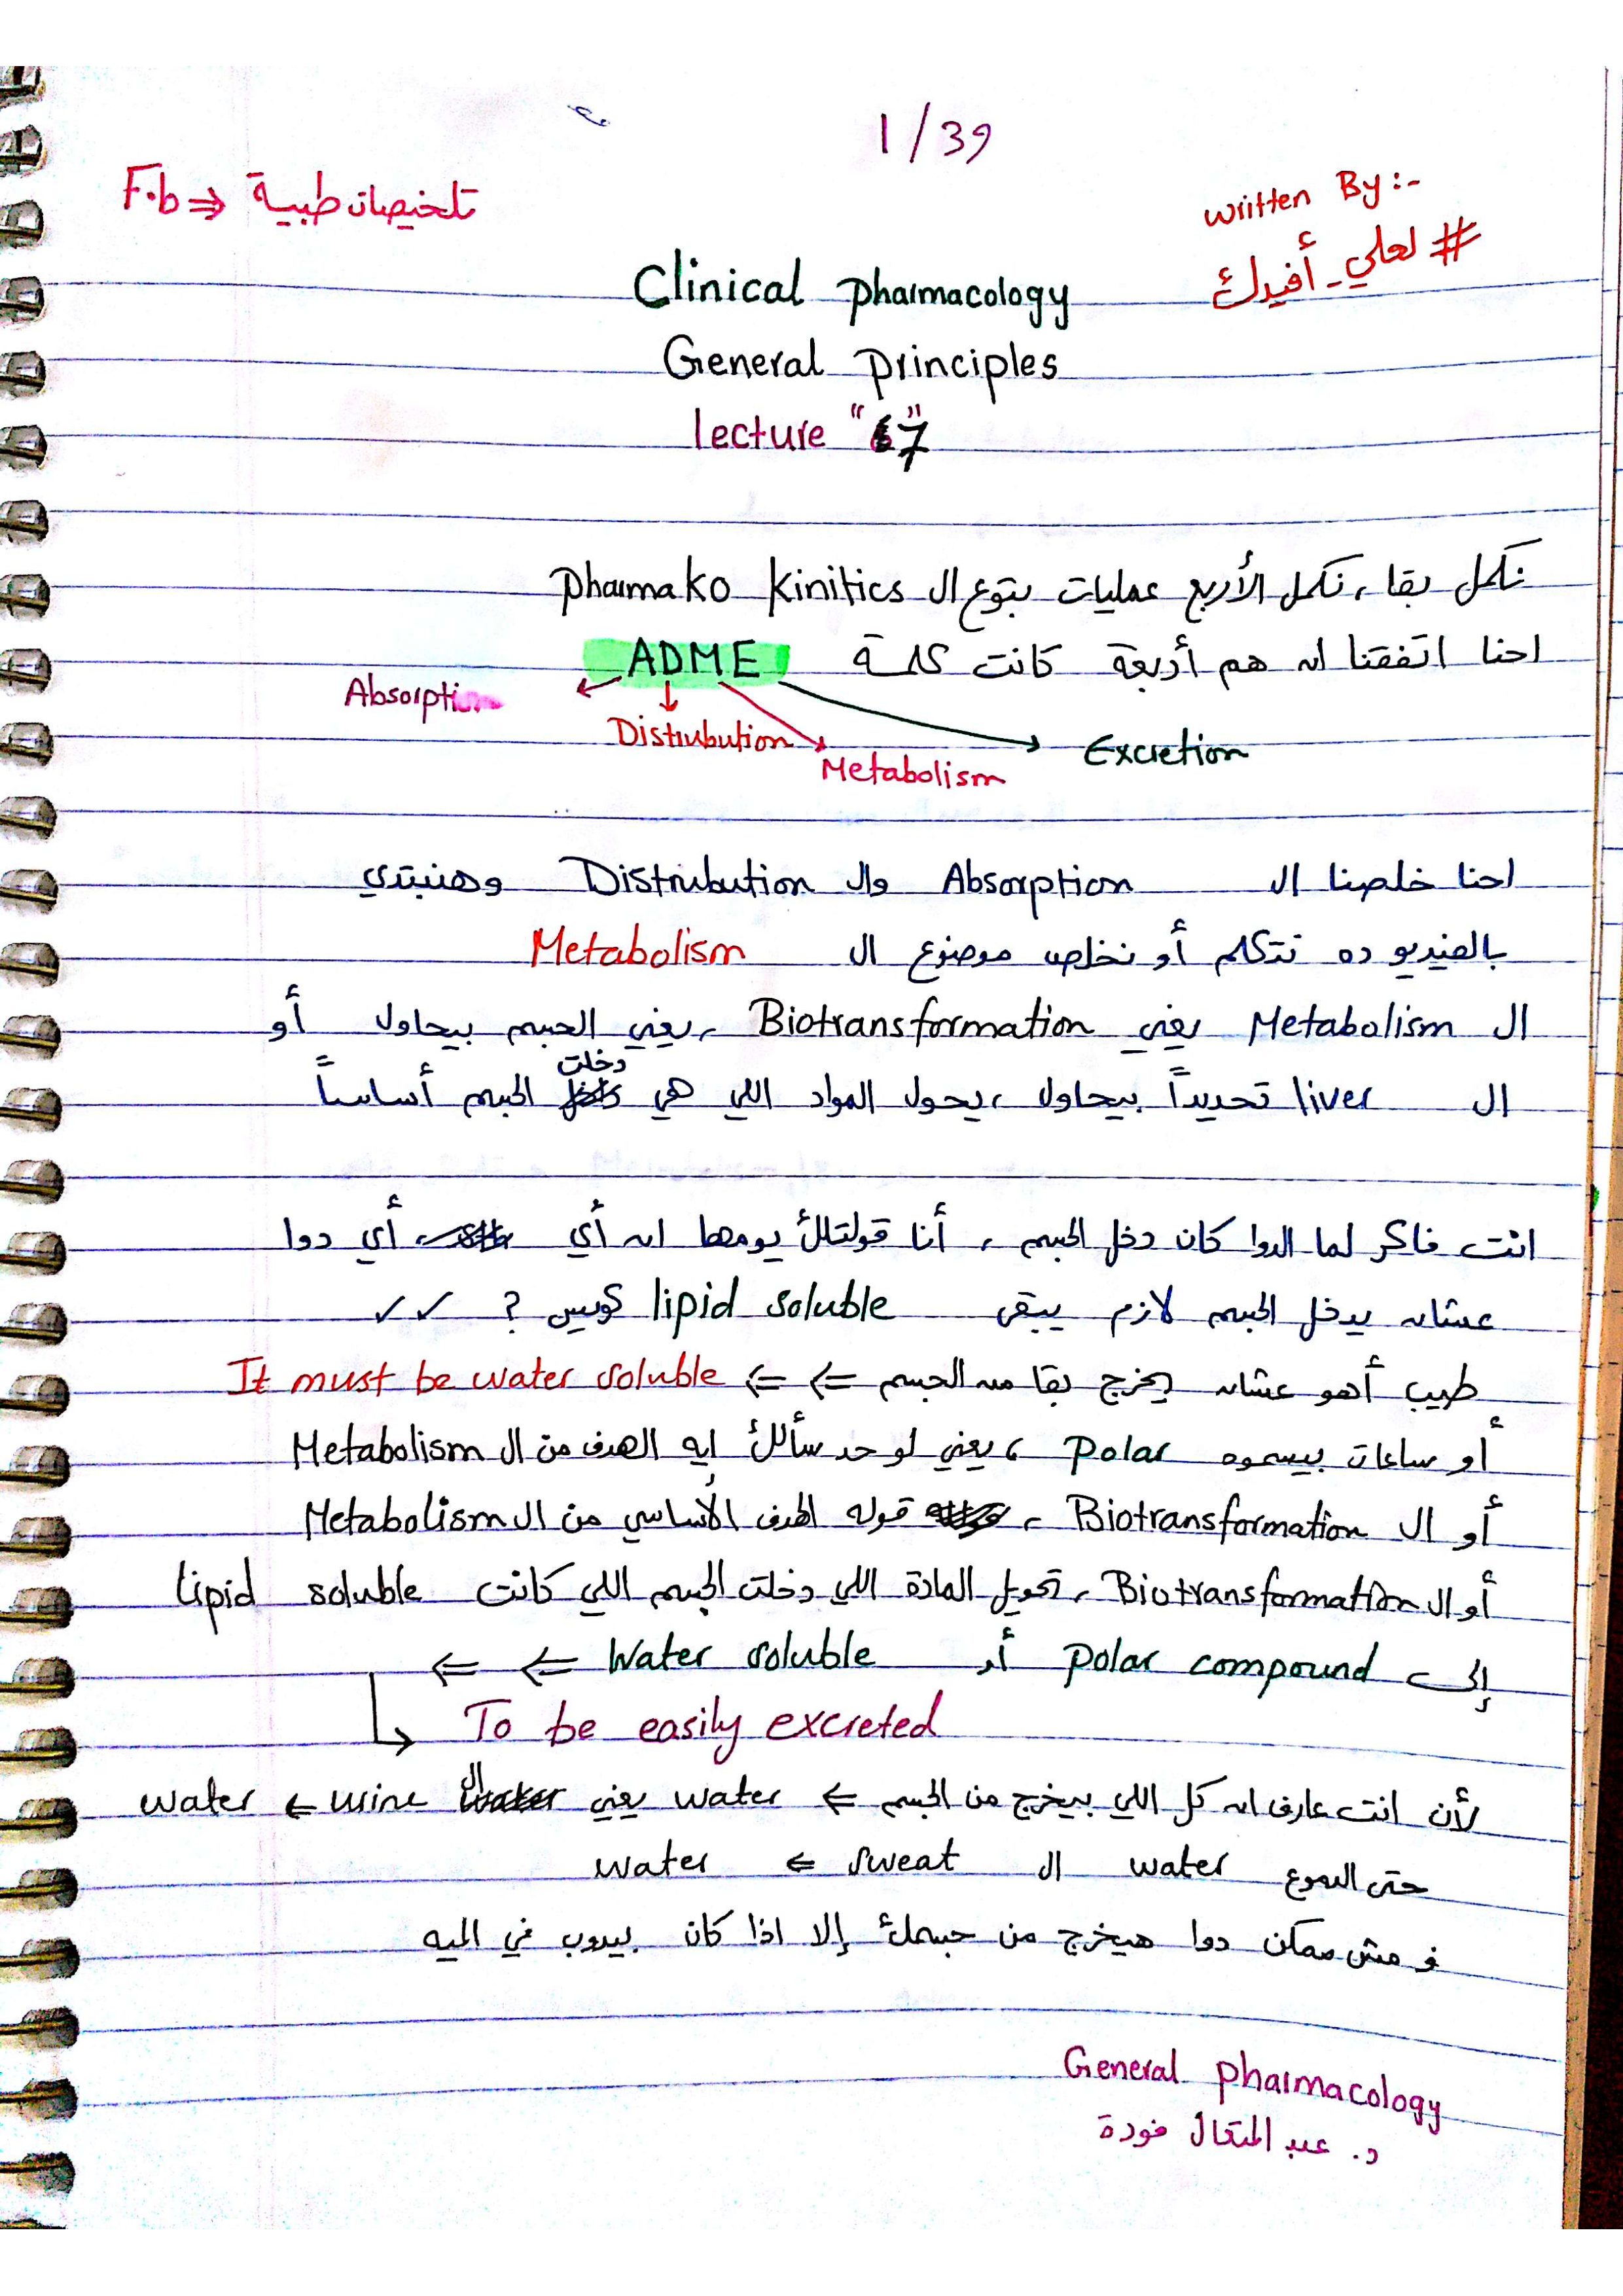 1/39
F.b ⇒ تلخيصات طبية
Written By:-
#لعلي_أفيدك
Clinical pharmacology
General principles
lecture "7"
نكمل بقا، نكمل الأربع عمليات بتوع ال Pharmako Kinitics
احنا اتفقنا انه هم أربعة كانت كلمة ADME
Absorption
Distribution
Metabolism
Excretion
احنا خلصنا ال Absorption وال Distribution وهنبتدي
بالفيديو ده نتكلم أو نخلص موضوع ال Metabolism
ال Metabolism يعني Biotransformation، يعني الجسم بيحاول أو
ال liver تحديداً بيحاول، يحول المواد اللي هي دخلت الجسم أساساً
انت فاكر لما الدوا كان دخل الجسم، أنا قولتلك يومها انه أي أي دوا
عشانه يدخل الجسم لازم يبقى lipid soluble كويس ? ✓✓
طيب أهو عشانه يخرج بقا منه الجسم ⇐ ⇐ It must be water soluble
أو ساعات بيسموه Polar، يعني لو حد سألك إيه الهدف من ال Metabolism
أو ال Biotransformation، قوله الهدف الأساسي من ال Metabolism
أو ال Biotransformation، تحويل المادة اللي دخلت الجسم اللي كانت Lipid soluble
إلى Polar compound أو Water soluble ⇐ ⇐
To be easily excreted
لأن انت عارف انه كل اللي بيخرج من الجسم ⇐ water يعني ال urine ⇐ water
حتى الدموع water ال sweat ⇐ water
ف مش ممكن دوا هيخرج من جسمك إلا اذا كان بيدوب في الميه
General pharmacology
د. عبد المتعال فودة